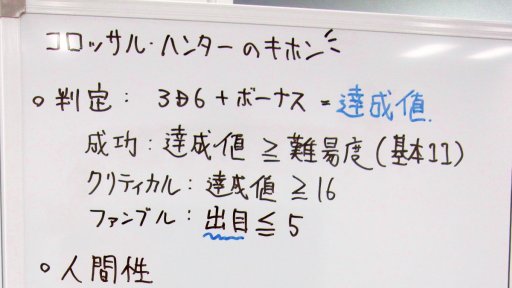 コロッサル・ハンターのキホン
○ 判定： 3D6+ボーナス = 達成値.
成功：達成値 ≧ 難易度(基本11)
クリティカル：達成値 ≧ 16
ファンブル：出目 ≦ 5
○ 人間性